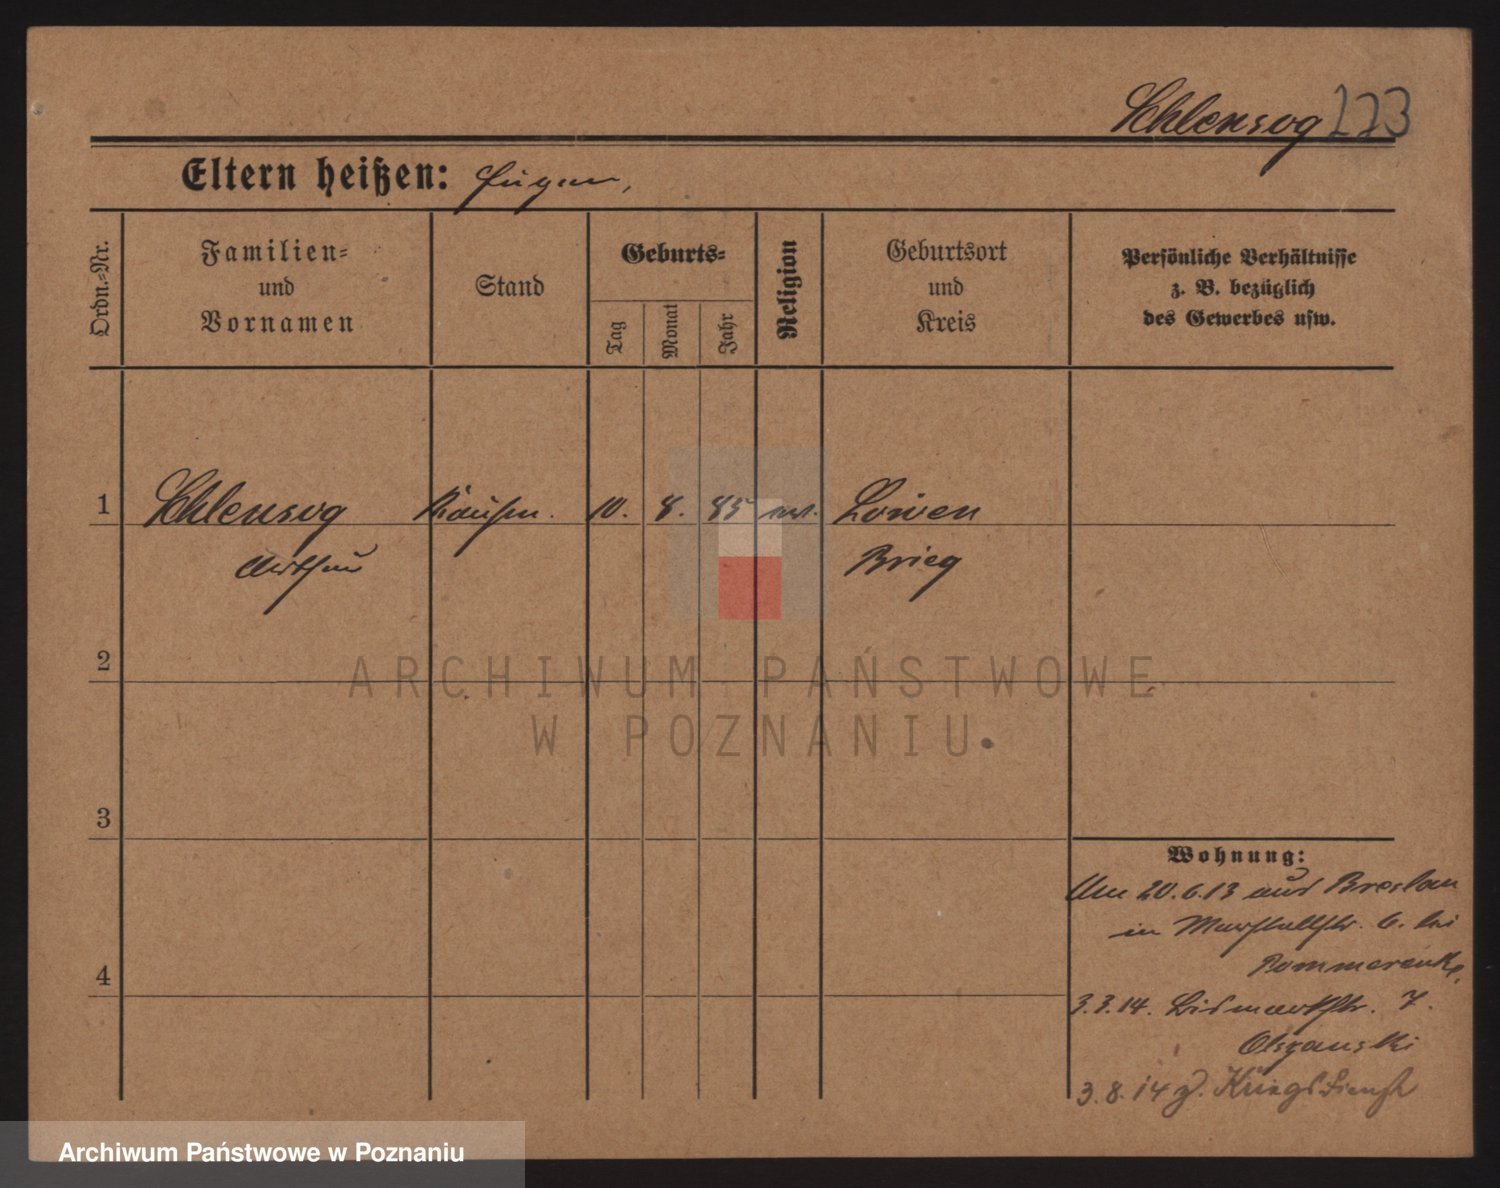 Schlensog 273
Eltern heißen: Eugen,
Ordn.-Nr.
Familien-
und
Vornamen
Stand
Geburts-
Tag
Monat
Jahr
Religion
Geburtsort
und
Kreis
Persönliche Verhältnisse
z. B. bezüglich
des Gewerbes usw.
1 Schlensog Kaufm. 10. 8. 85 Löwen
Arthur Brieg
2
ARCHIWUM PAŃSTWOWE
W POZNANIU
3
Wohnung:
Am 20.6.13 aus Breslau
in Marstallstr. 6. bei
Pommerenke,
4
3.3.14. Bismarkstr. 7.
Olszanski
3.8.14 z. Kriegsdienst
Archiwum Państwowe w Poznaniu